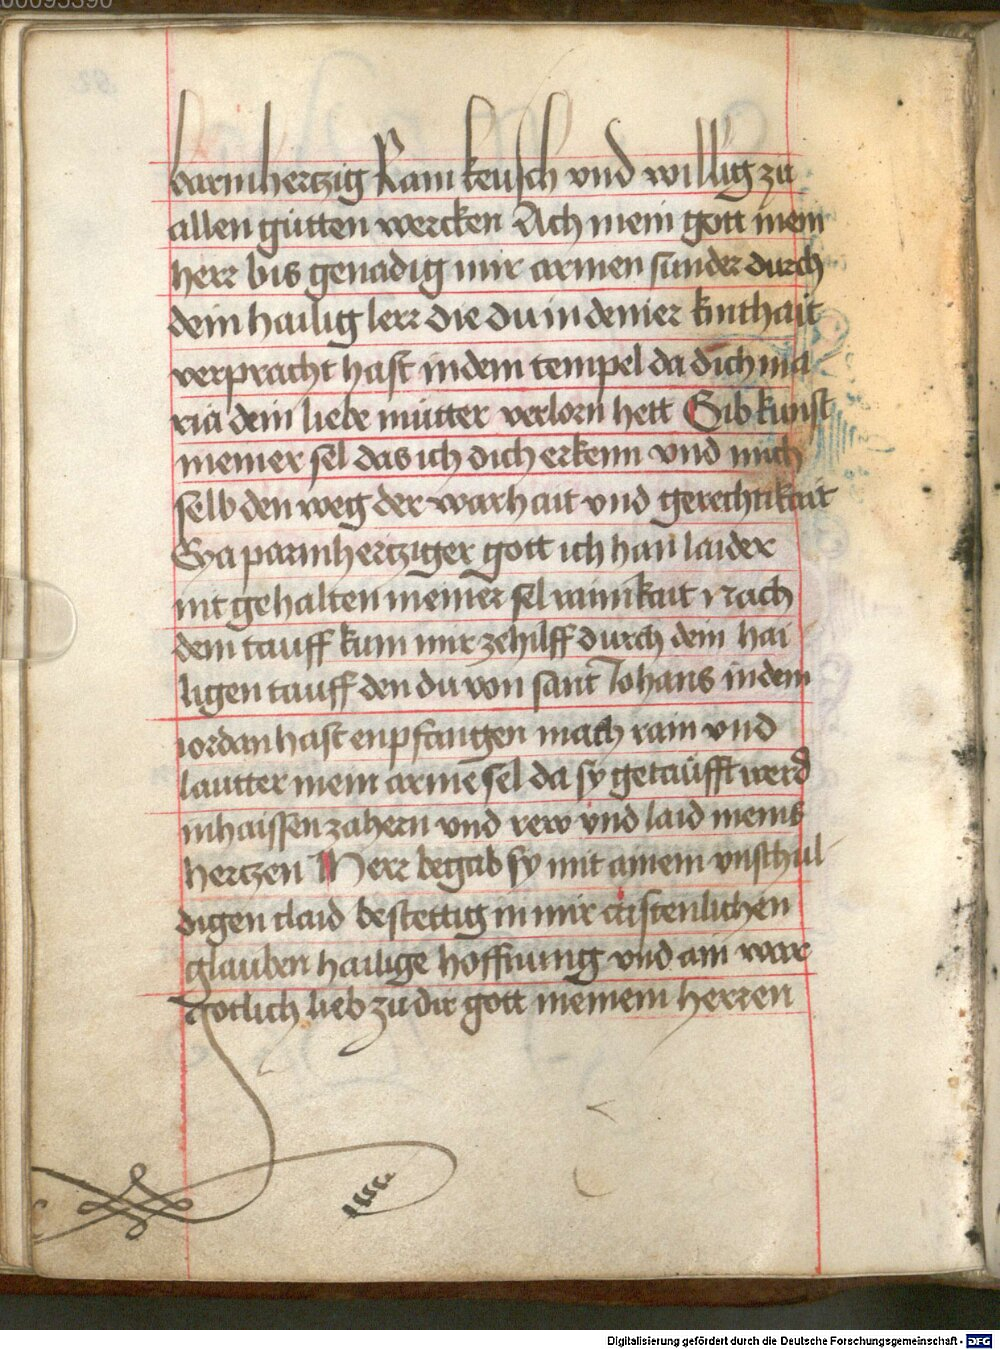 barmhertzig Rain keusch vnd willig zu
allen gütten wercken Ach mein gott mein
herr bis genadig mir armen sünder durch
dein hailig lerr die du in deinier kinthait
verpracht hast in dem tempel da dich ma
ria dein liebe mütter verlorn hett Gib kunst
meiner sel das ich dich erkenn vnd mich
selb den weg der warhait vnd gerechtikait
Eya parmhertziger gott ich han laider
nit gehalten meiner sel rainikait nach
dem tauff kum mir ze hilff durch dein hai
ligen tauff den du von sant Johans in dem
iordan hast enpfangen mach rain vnd
lautter mein arme sel da sy getaüfft werd
in haissen zähern vnd rew vnd laid meins
hertzen Herr begab sy mit ainem vnschul
digen claid bestettig in mir cristenlichen
glauben hailige hoffnung vnd ain war
gotlich lieb zu dir gott meinem herren
Digitalisierung gefördert durch die Deutsche Forschungsgemeinschaft - DFG